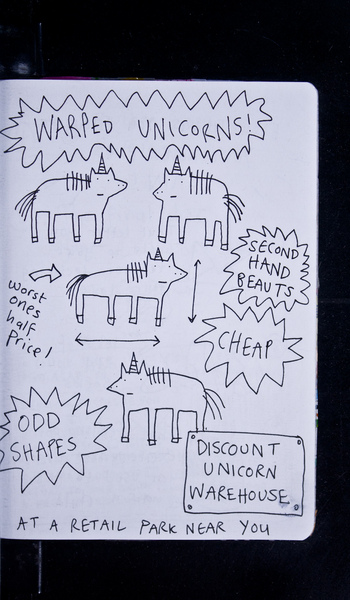 WARPED UNICORNS!
SECOND
HAND
BEAUTS
worst
ones
half
price!
CHEAP
ODD
SHAPES
DISCOUNT
UNICORN
WAREHOUSE
AT A RETAIL PARK NEAR YOU